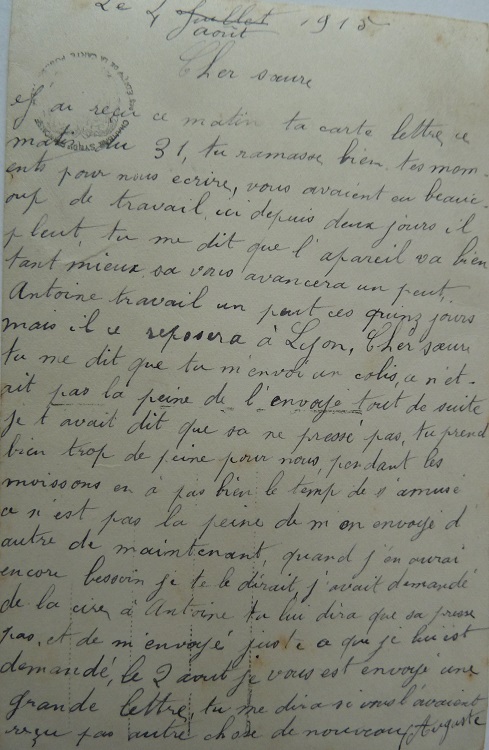 Le 4 Juillet 1915
aout
Cher sœure
J'ai reçu ce matin ta carte lettre, ce
matin du 31, tu ramasse bien tes mom-
ents pour nous écrire, vous avaient eu beauc-
oup de travail, ici depuis deux jours il
pleut, tu me dit que l'apareil va bien
tant mieux sa vous avancera un peut,
Antoine travail un peut ces quinz jours
mais il ce reposera à Lyon, Cher sœure
tu me dit que tu m'envoi un colis, ce n'et-
ait pas la peine de l'envoyé tout de suite
je t'avait dit que sa ne pressé pas, tu prend
bien trop de peine pour nous, pendant les
moissons en à pas bien le temp de s'amusé
ce n'est pas la peine de m'en envoyé d'
autre de maintenant, quand j'en aurai
encore bessoin je te le dirait, j'avait demandé
de la cire à Antoine tu lui dira que sa presse
pas, et de m'envoyé juste ce que je lui est
demandé, le 2 aout je vous est envoyé une
grande lettre, tu me dira si vous l'avaient
reçu pas autre chose de nouveau Auguste